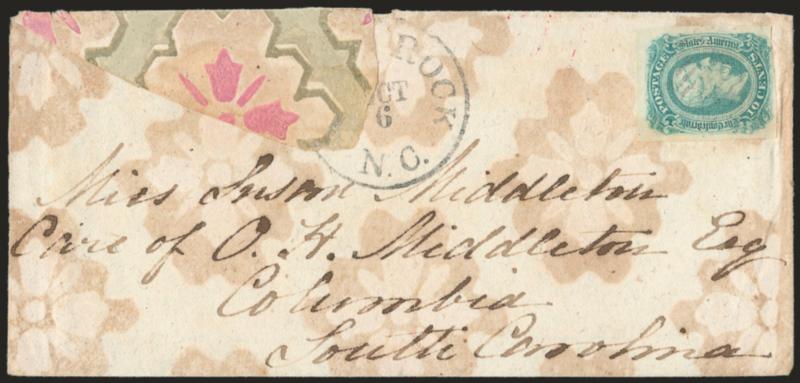 ROCK
OCT
6
N.C.
POSTAGE
TEN CENTS
States America
The Confederate
Miss Susan Middleton
Care of O. H. Middleton Esq
Columbia
South Carolina